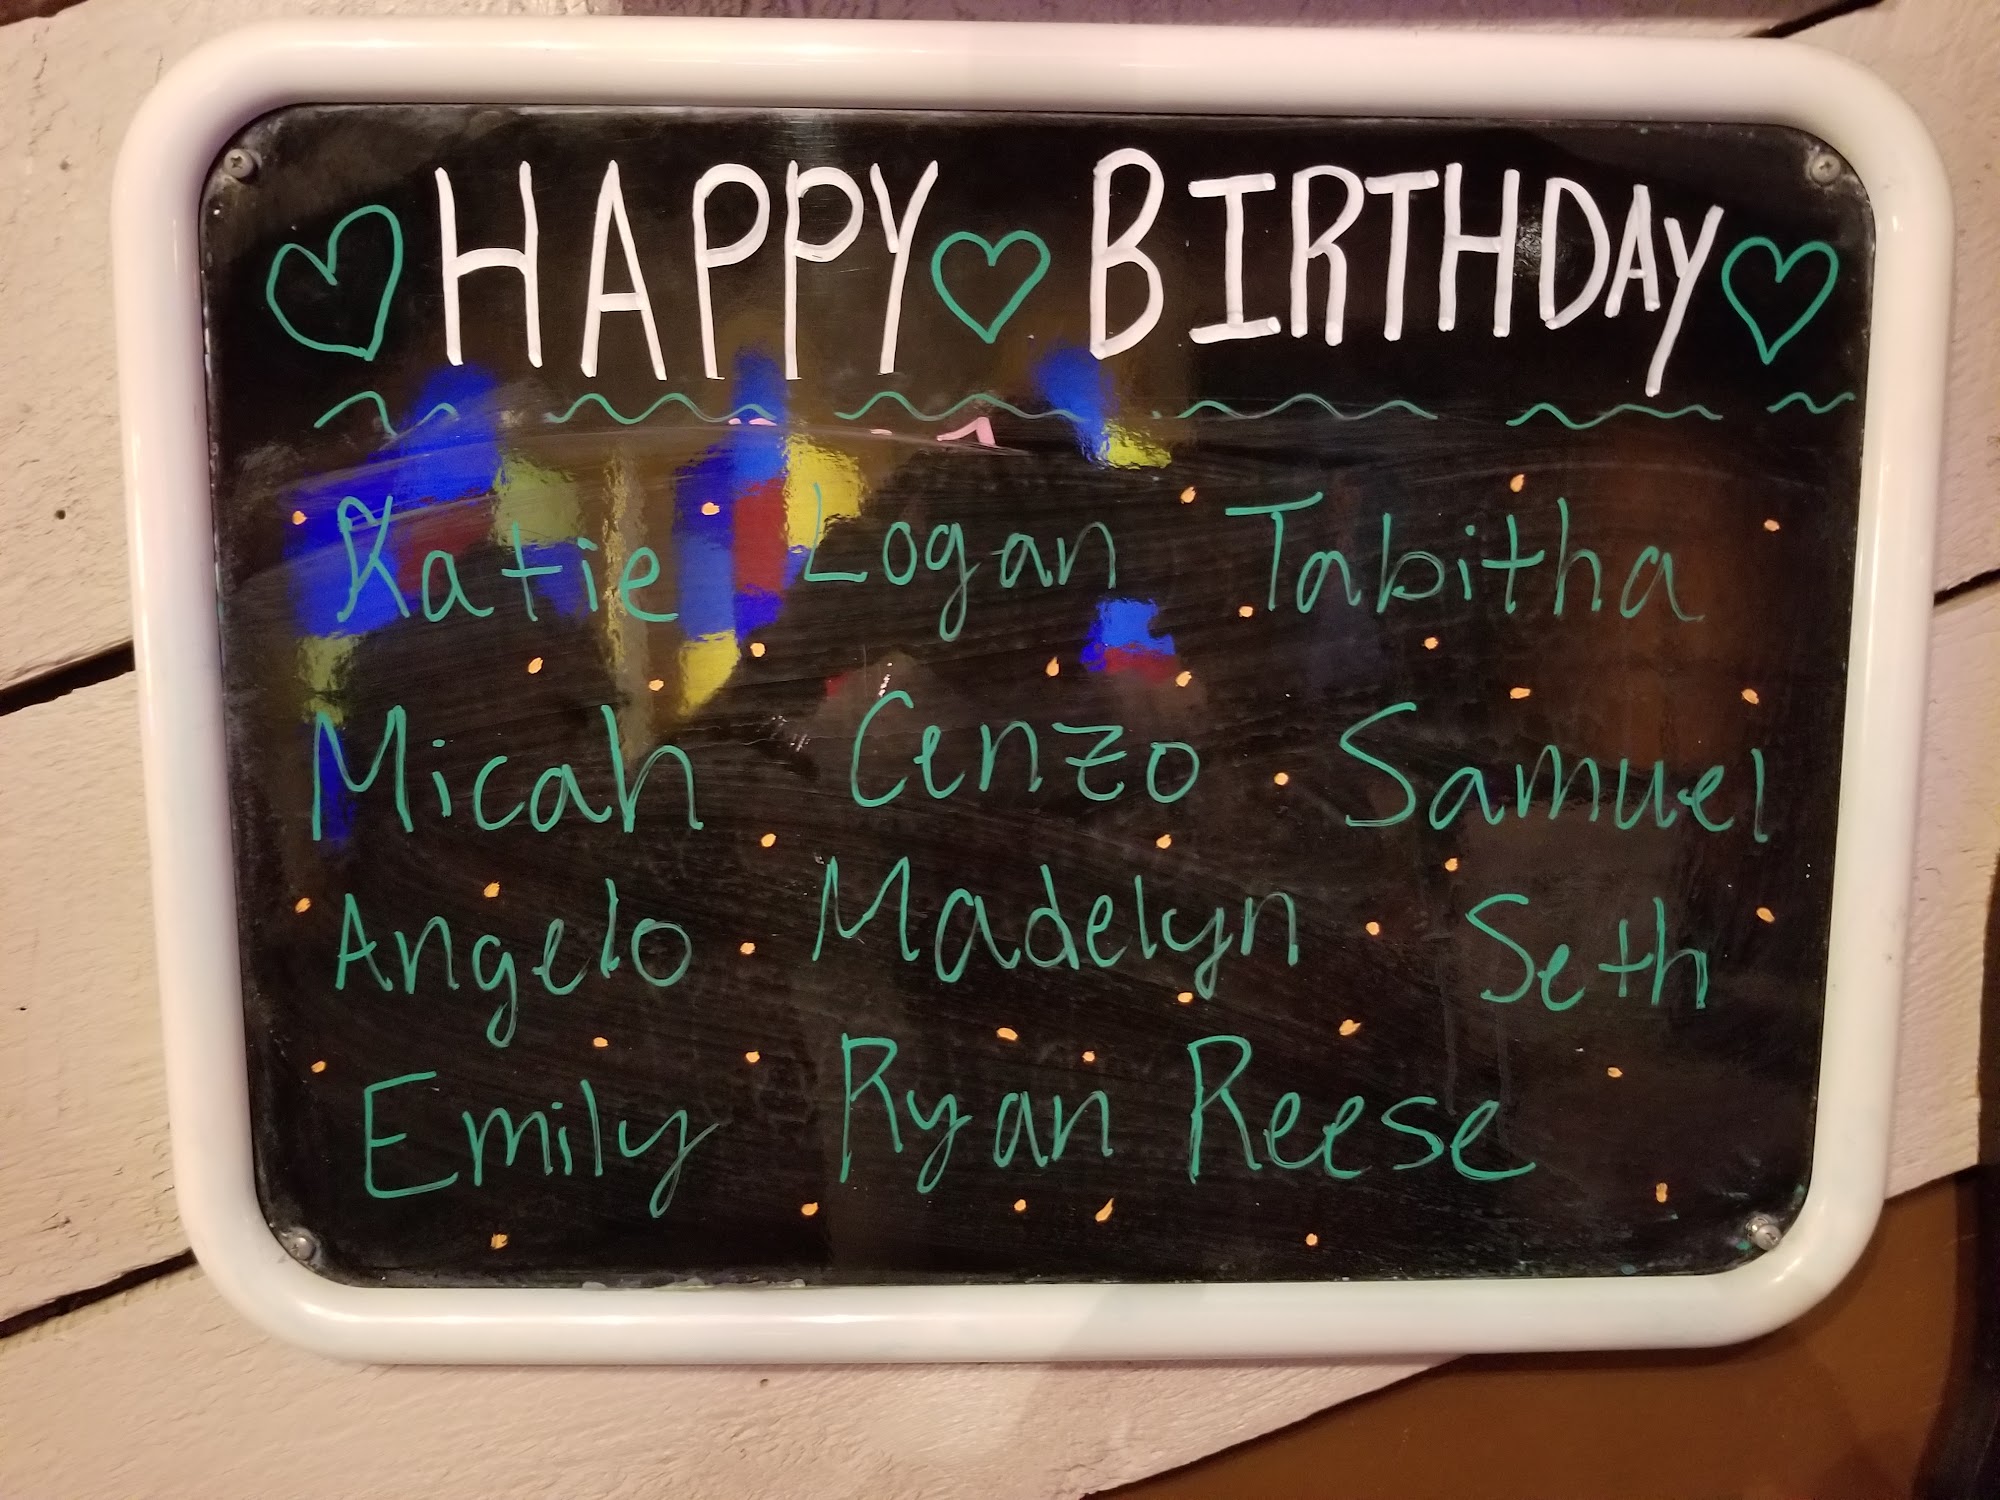 HAPPY BIRTHDAY
Katie Logan Tabitha
Micah Cenzo Samuel
Angelo Madelyn Seth
Emily Ryan Reese